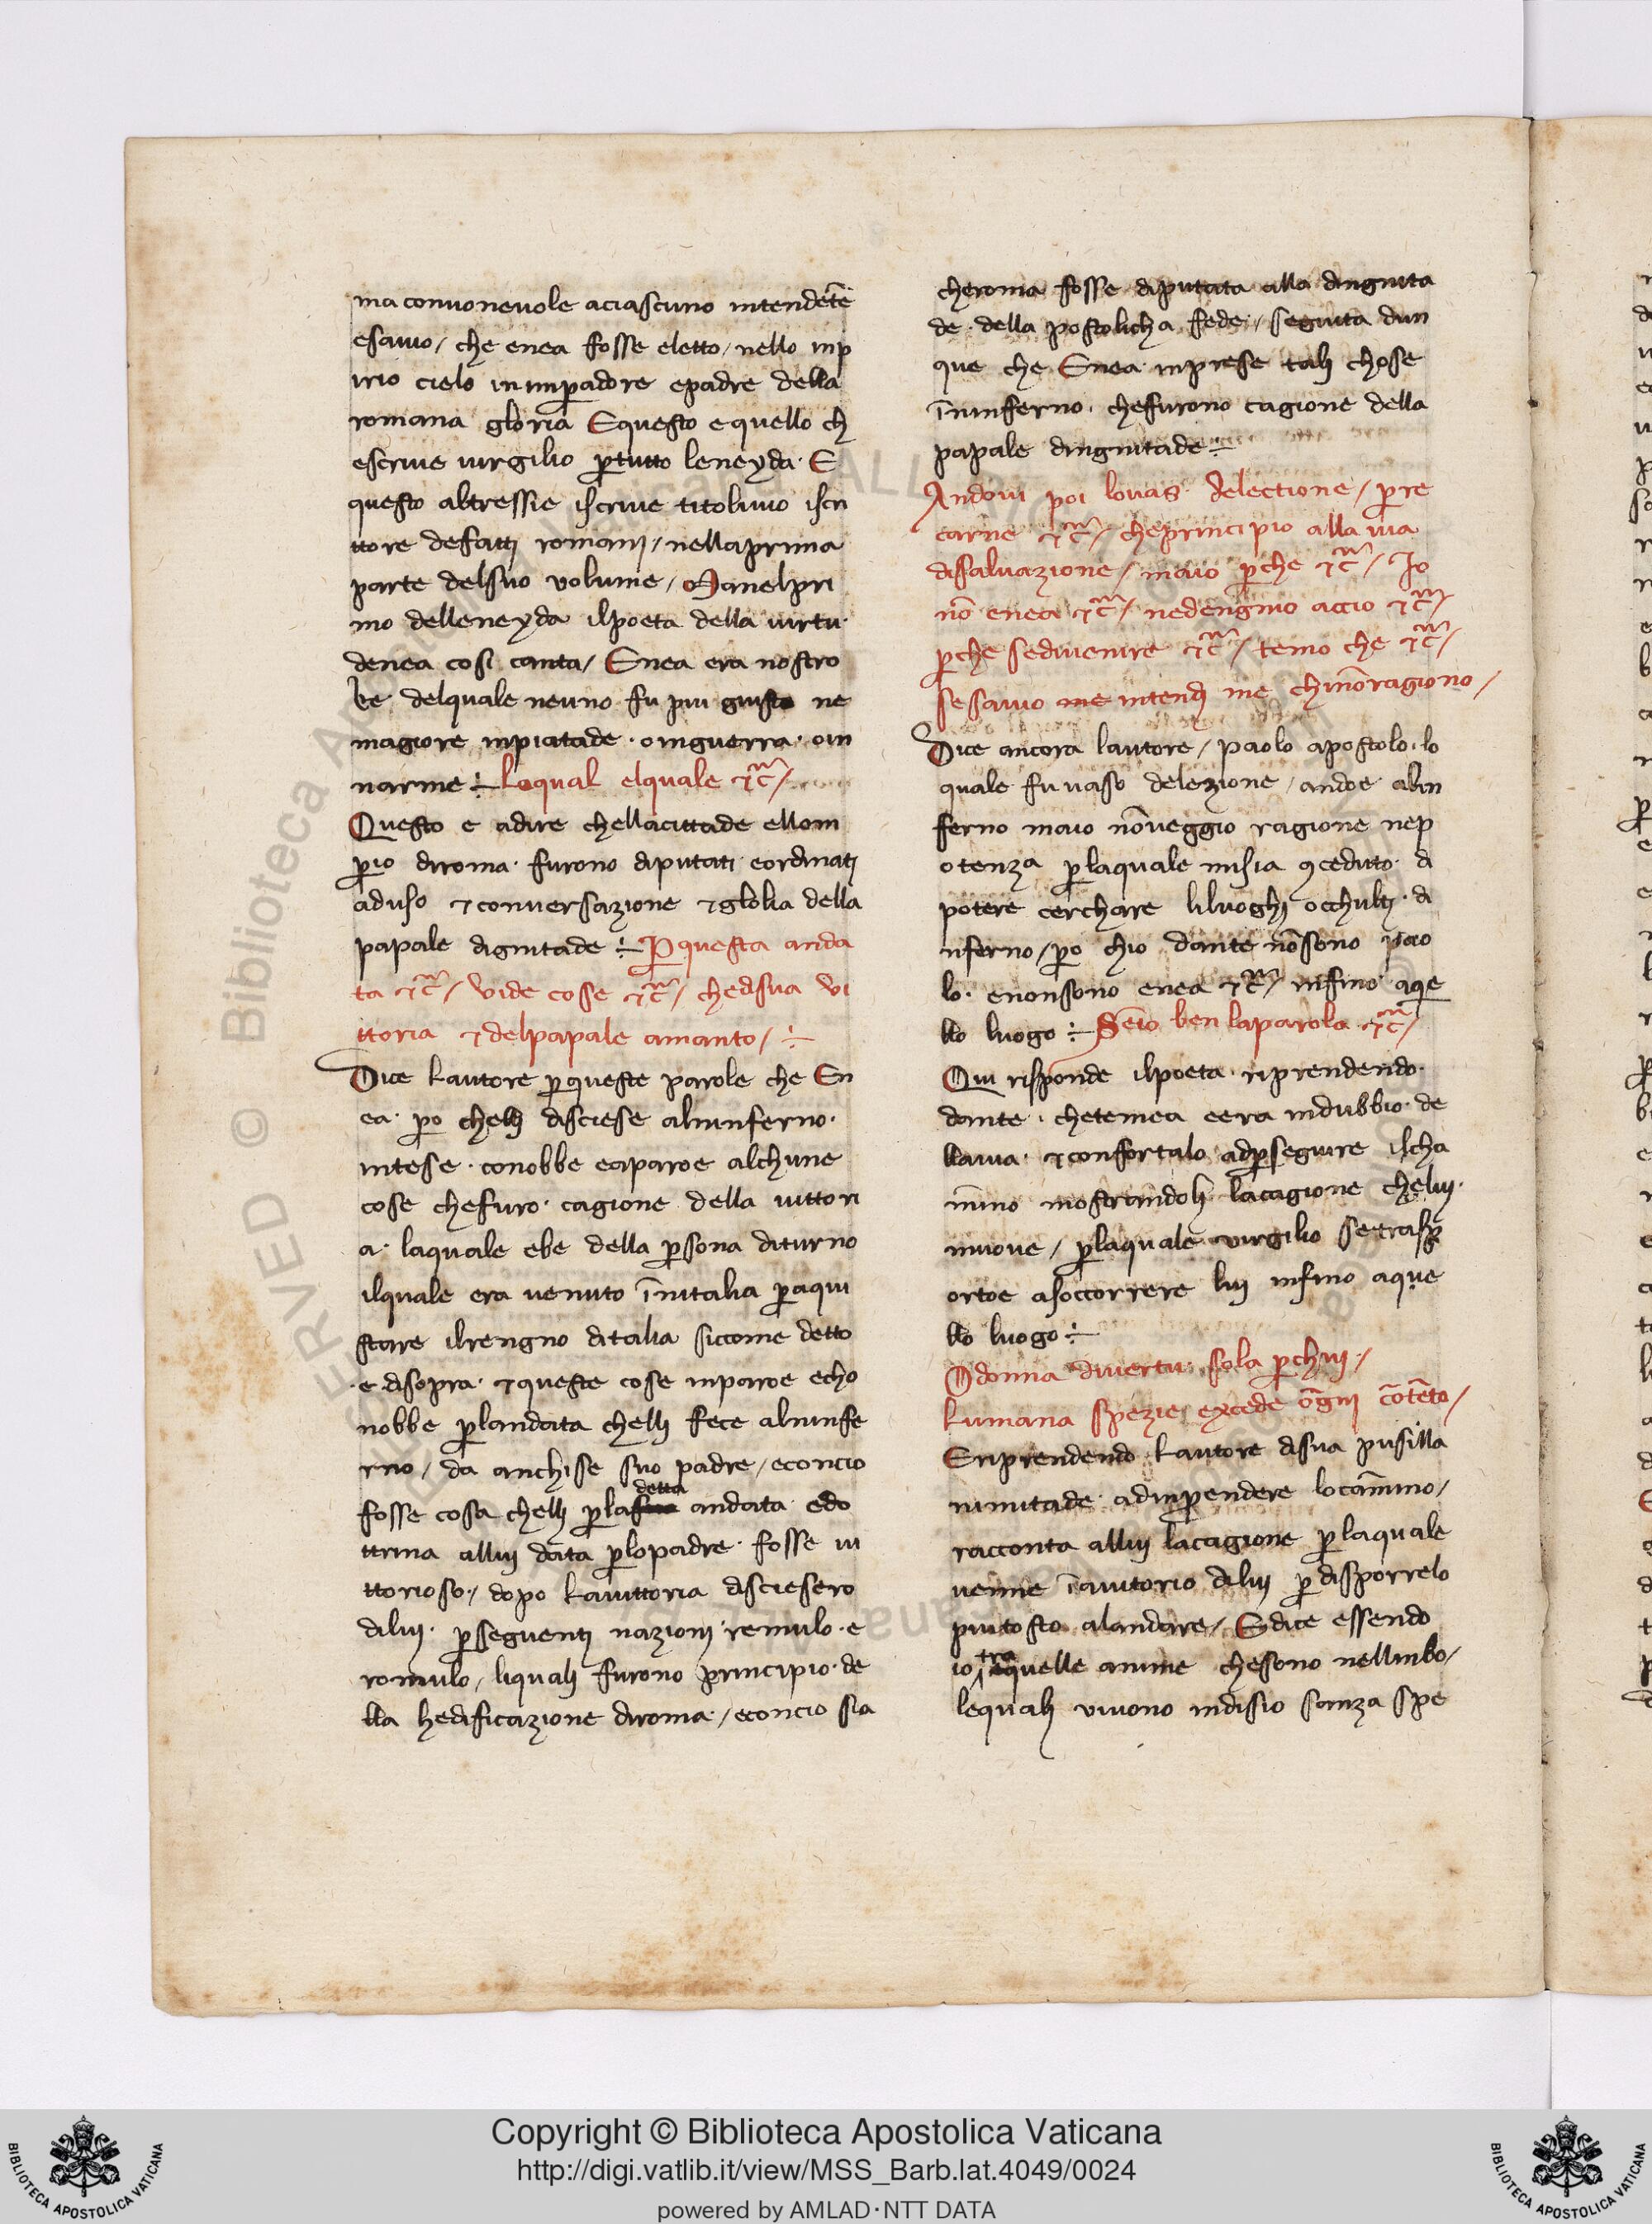 ma convonevole aciascuno intendēte
esavio / che enea fosse eletto / nello inp
irio cielo in imꝑadore epadre della
romana gloria Equesto equello ch
escrive virgilio ꝑtutto leneyda · E
questo altressie iscrive titolivio iscri
ttore defattj romanj / nellaprima
parte delsuo volume / Manelpri
mo delleneyda ilpoeta della virtu·
denea così canta / Enea era nostro
re · delquale neuno fu piu giusto ne
magiore inpiatade · oinguerra · oin
narme ÷ Loqual elquale ⁊c̄ /
Questo e adire chellacittade ellom
ꝑio diroma · furono diputati eordinatj
aduso ⁊conversazione ⁊glolia della
papale dignitade ÷ Ꝑ questa anda
ta ⁊c̄ / vide cose ⁊c̄ / chedsua vi
ttoria ⁊delpapale amanto / ÷
Dice lautore ꝑqueste parole che En
ea · ꝑo chellj disciese alninferno ·
intese · conobbe eaparoe alchune
cose chefuro · cagione della vittori
a · laquale ebe della ꝑsona diturno
ilquale era venuto īnitalia ꝑaqui
stare ilrengno ditalia siccome detto
· e disopra · ⁊queste cose inparoe echo
nobbe ꝑlandata chellj fece alninfe
rno / da anchise suo padre / econcio
detta
fosse cosa chellj ꝑla andata edo
ttrina alluj data ꝑlopadre · fosse vi
ttorioso · / dopo lavittoria disciesero
diluj · ꝑseguentj nazionj remulo · e
romulo / liqualj furono principio · de
lla hedificazione diroma · / econcio sia
cheroma fosse diputata alla dingnita
de · della postolicha sede · / seguita dun
que che Enea inprese talj chose
īninferno · chefurono cagione della
papale dingnitade ÷
Andovi poi lovas delectione / ꝑre
carne ⁊c̄ / cheprincipio alla via
disalvazione / maio ꝑche ⁊c̄ / Io
nō enea ⁊c̄ / nedengnio accio ⁊c̄ /
ꝑche sedivenire ⁊c̄ / temo che ⁊c̄ /
sessavio me intendj me chinōragiono /
Dice ancora lautore / paolo apostolo · lo
quale fu vaso delezione / andoe alin
ferno maio nōveggio ragione nep
otenza ꝑlaquale misia ꝯceduto · di
potere cerchare liluoghj occhultj · di
nferno / ꝑo chio dante nōsono pao
lo · enonsono enea ⁊c̄ / insino aque
llo luogo ÷ Sēio ben laparola ⁊c̄ /
Qui risponde ilpoeta · riprendendo ·
dante · chetemea eera indubbio · de
llavia · ⁊confortalo adꝑseguire ilcha
mino mostrandolj lacagione cheluj ·
muove / ꝑlaquale virgilio setrasp
ortoe asoccorrere luj insino aque
llo luogo ÷
O donna divertu · sola ꝑchuj · /
lumana spezie excede ōgnj cōtēto /
Enprendendo lautore disua pusilla
nimitade · adinprendere locāmino /
racconta alluj lacagione ꝑlaquale
venne īaiutorio diluj ꝑ disporrelo
piutosto alandare / Edice essendo
tra
io quelle anime chesono nellinbo /
lequalj vivono indisio sanza spe
Copyright © Biblioteca Apostolica Vaticana
http://digi.vatlib.it/view/MSS_Barb.lat.4049/0024
powered by AMLAD·NTT DATA
BIBLIOTECA APOSTOLICA VATICANA
BIBLIOTECA APOSTOLICA VATICANA